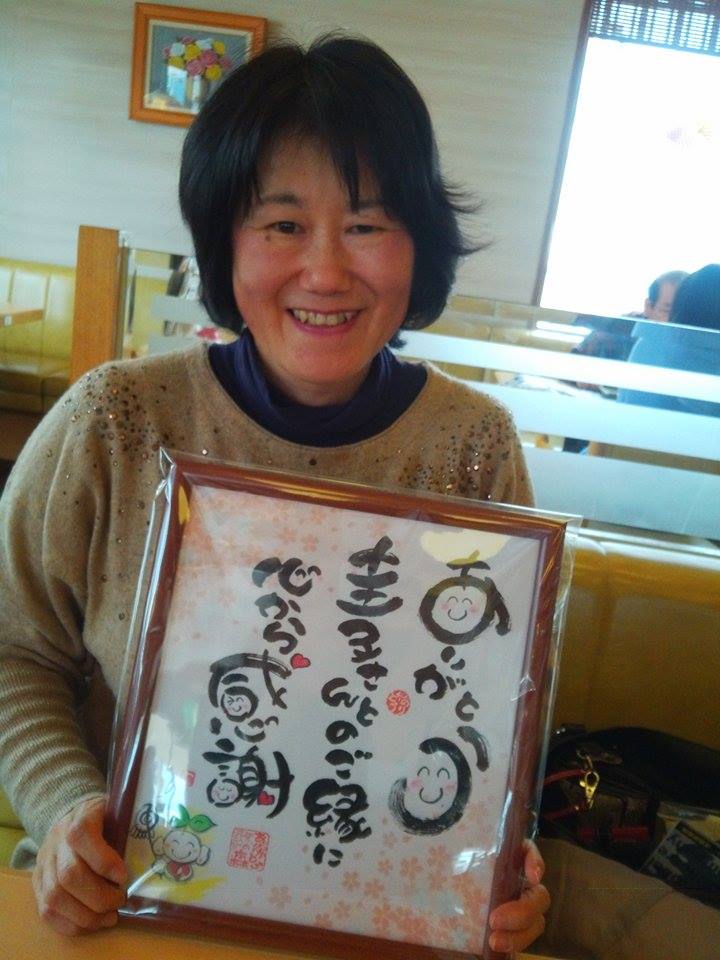 ありがとう
圭子さんとのご縁に
心から感謝